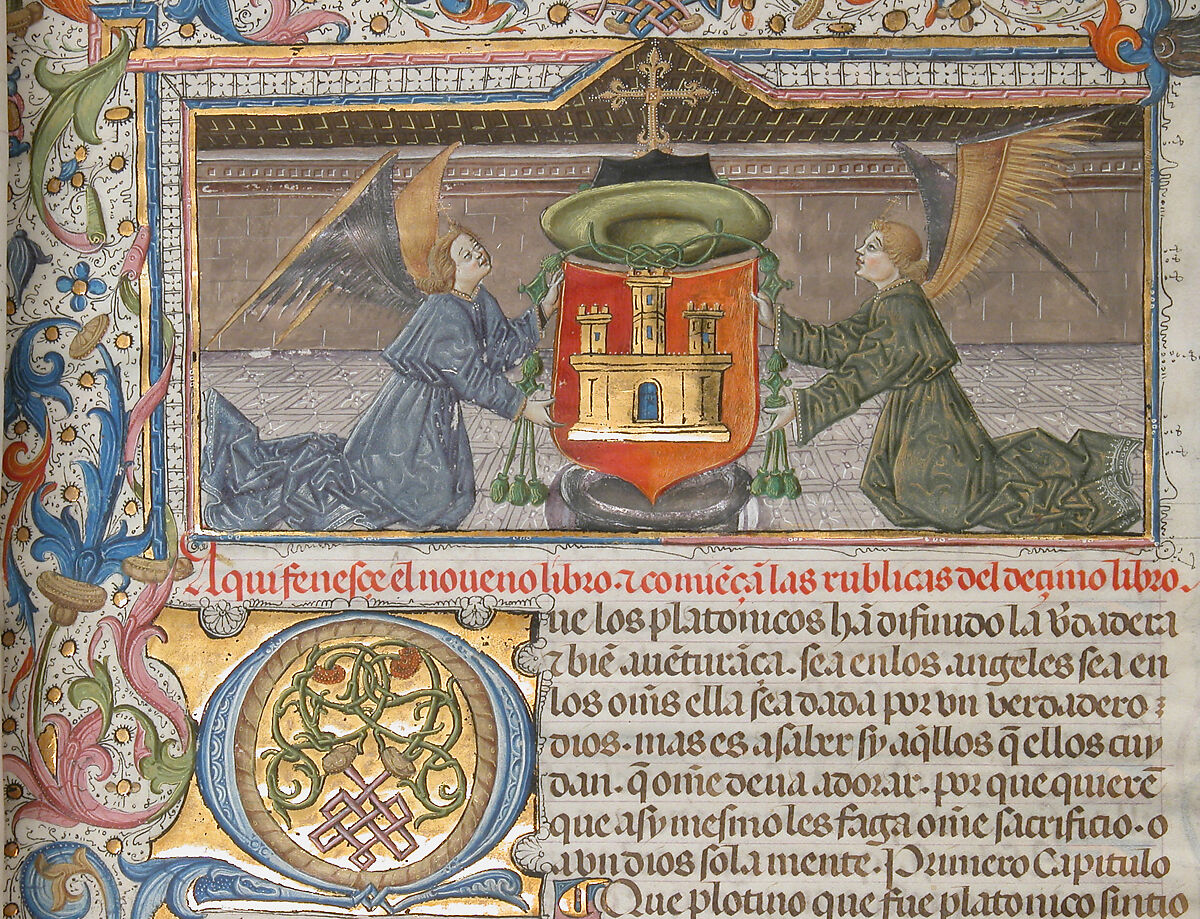 Aqui feneſçe el noueno libro ⁊ comiẽçã las rublicas del deçimo libro.
Que los platonicos hã difinido la ṽdadera
⁊ biẽ auẽturãça. ſea en los angeles ſea en
los om̃s ella ſea dada por vn verdadero
dios. mas es a ſaber ſy aq̃llos q̃ ellos cuy
dan. q̃ om̃e deua adorar. por que quierẽ
que aſy meſmo les faga om̃e ſacrificio. o
a vn dios ſola mente. Primero Capitulo
Que plotino que fue platonico ſintio